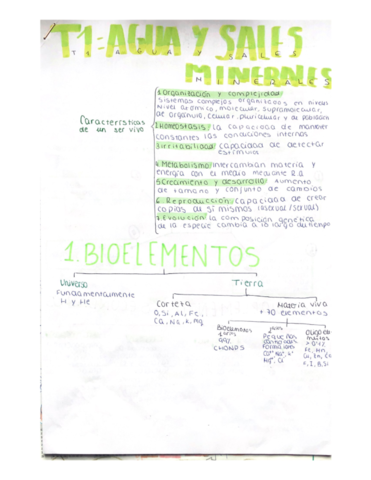 T1: AGUA Y SALES
T1: AGUA Y SALES
MINERALES
MINERALES
Características
de un ser vivo
1. Organización y complejidad:
sistemas complejos organizados en niveles
Nivel atómico, molecular, supramolecular,
de orgánulo, celular, pluricelular y de población
2. Homeostasis: La capacidad de mantener
constantes las condiciones internas
3. Irritabilidad: capacidad de detectar
estímulos
4. Metabolismo: intercambian materia y
energía con el medio mediante R.Q
5. Crecimiento y desarrollo: aumento
de tamaño y conjunto de cambios
6. Reproducción: capacidad de crear
copias de sí mismos (asexual/sexual)
7. Evolución: la composición genética
de la especie cambia a lo largo du tiempo
1. BIOELEMENTOS
Universo
Fundamentalmente
H y He
Tierra
Corteza
O, Si, Al, Fe,
Ca, Na, K, Mg
Materia viva
+ 70 elementos
Bioelementos
1arios
99%
CHONPS
2arios
Pequeñas
cantidades
forma ion
Ca²⁺ Na⁺, K⁺
Mg²⁺, Cl
Oligoele
mentos
< 0'1%
Fe, Mn,
Cu, Zn, Co
F, I, B, Si